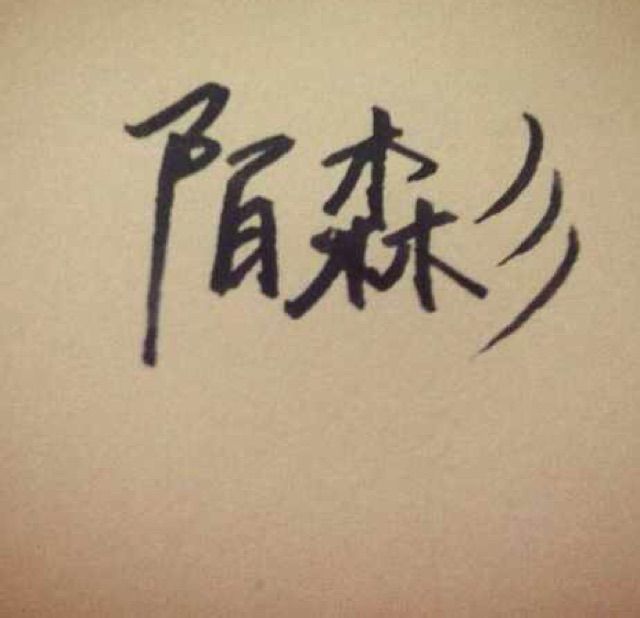 陌森彡